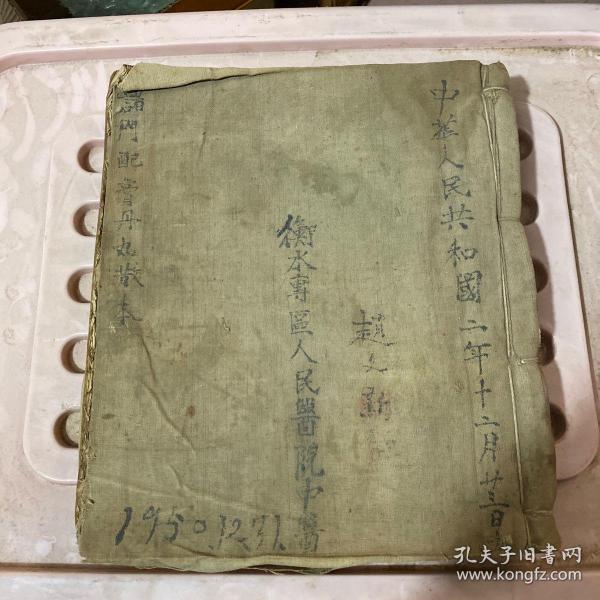 中華人民共和國二年十二月廿三日
趙文新
衡水專區人民醫院中醫
門配膏丹丸散本
1950.12.31.
孔夫子旧书网
www.kongfz.com